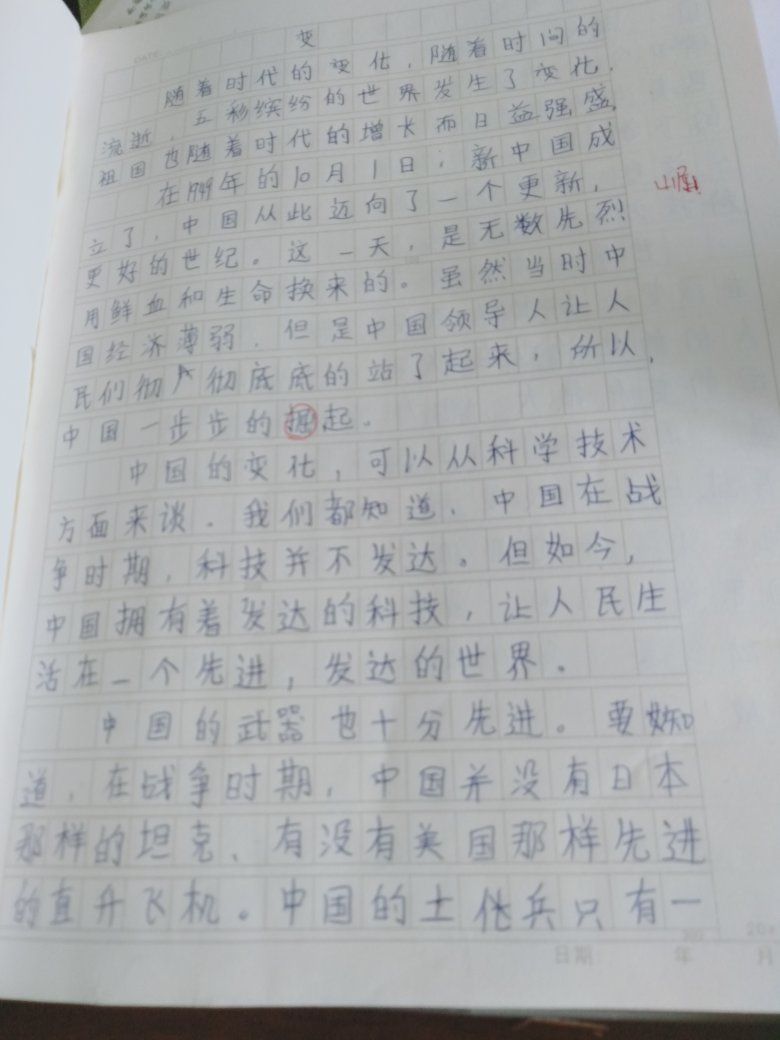 DATE
变
随着时代的变化，随着时间的
流逝，五彩缤纷的世界发生了变化，
祖国也随着时代的增长而日益强盛。
在1949年的10月1日，新中国成
立了，中国从此迈向了一个更新，
更好的世纪。这一天，是无数先烈
用鲜血和生命换来的。虽然当时中
国经济薄弱，但是中国领导人让人
民们彻彻底底的站了起来，所以，
中国一步步的掘起。
崛
中国的变化，可以从科学技术
方面来谈。我们都知道，中国在战
争时期，科技并不发达。但如今，
中国拥有着发达的科技，让人民生
活在一个先进，发达的世界。
中国的武器也十分先进。要知
道，在战争时期，中国并没有日本
那样的坦克、有没有美国那样先进
的直升飞机。中国的土兵只有一
日期 年 月